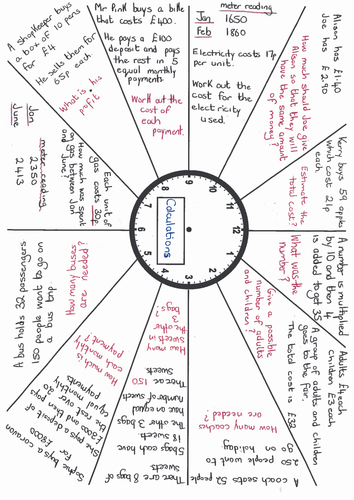 A shopkeeper buys
a box of 10 pens
for £4
He sells them for
65p each
What is his
profit?
Mr Pink buys a bike
that costs £400.
He pays a £100
deposit and pays
the rest in 5
equal monthly
payments.
Work out the
cost of
each
payment.
meter reading
Jan 1650
Feb 1860
Electricity costs 17p
per unit.
Work out the
cost for the
electricity
used.
Alison has £1.40
Joe has £2.90
How much should Joe give
Alison so that they will
have the same amount
of money?
Kerry buys 59 apples
which cost 21p
each.
Estimate the
total cost?
A number is multiplied
by 10 and then 4
is added to get 35
What was the
number?
Adults £4 each
Children £3 each
A group of adults and children
goes to the fair.
The total cost is £32
Give a possible
number of adults
and children?
A coach seats 52 people
250 people want to
go on holiday.
How many coaches
are needed?
There are 8 bags of
sweets
5 bags each have
18 sweets.
The other 3 bags
have an equal
number of sweets.
There are 150
sweets.
How many
sweets in
the other
3 bags?
Sophie buys a caravan
for £8000
She pays a deposit of
£2000 and then pays
the rest in 20
equal monthly
payments
How much is
each monthly
payment?
A bus holds 32 passengers
150 people want to go on
a bus
trip
How many buses
are needed?
meter reading
Jan 2350
June 2413
Each unit of
gas costs 30p
How much was spent
on gas between Jan
and June?
Calculations
12
1
2
3
4
5
6
7
8
9
10
11